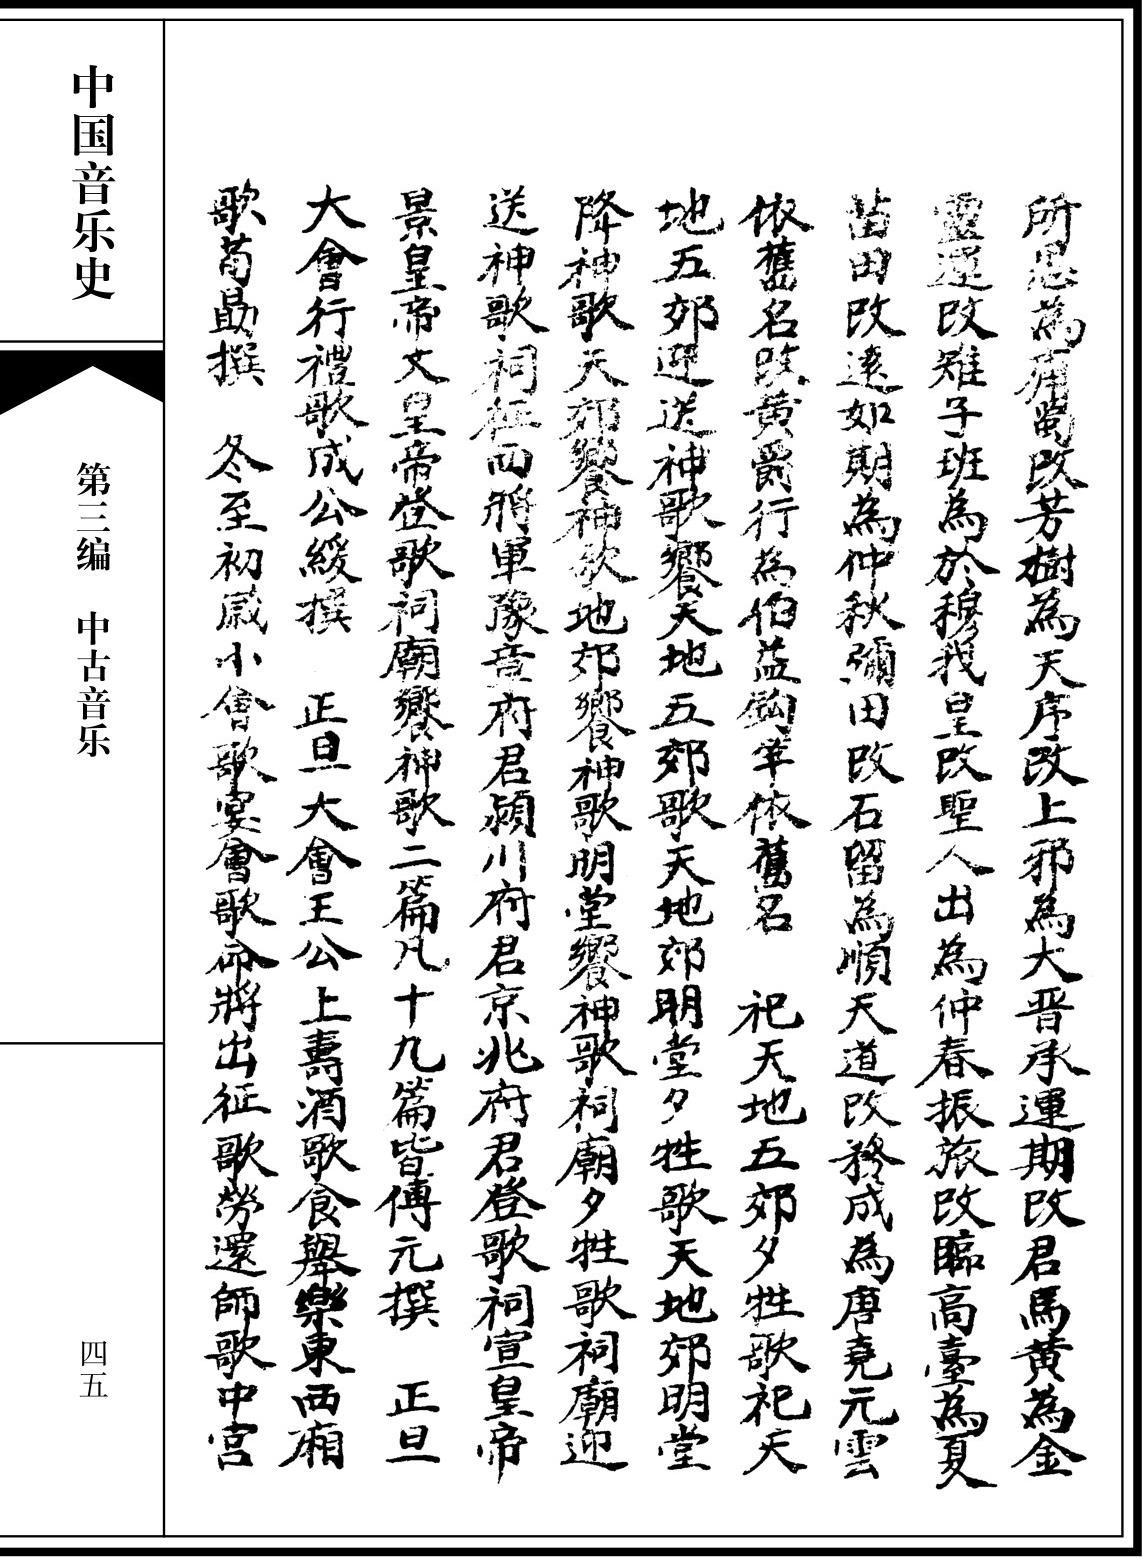 所思為痛蜀改芳樹為天序改上邪為大晋承運期改君馬黄為金
靈運改雉子班為於穆我皇改聖人出為仲春振旅改臨高臺為夏
苗田改遠如期為仲秋獮田改石留為順天道改務成為唐堯元雲
依舊名改黄爵行為伯益鈎竿依舊名　祀天地五郊夕牲歌祀天
地五郊迎送神歌饗天地五郊歌天地郊明堂夕牲歌天地郊明堂
降神歌天郊饗神歌地郊饗神歌明堂饗神歌祠廟夕牲歌祠廟迎
送神歌祠征西將軍豫章府君潁川府君京兆府君登歌祠宣皇帝
景皇帝文皇帝登歌祠廟饗神歌二篇凡十九篇皆傅元撰　正旦
大會行禮歌成公綏撰　正旦大會王公上壽酒歌食舉樂東西廂
歌荀勗撰　冬至初歲小會歌宴會歌命將出征歌勞還師歌中宮
中国音乐史
第三编　中古音乐
四五